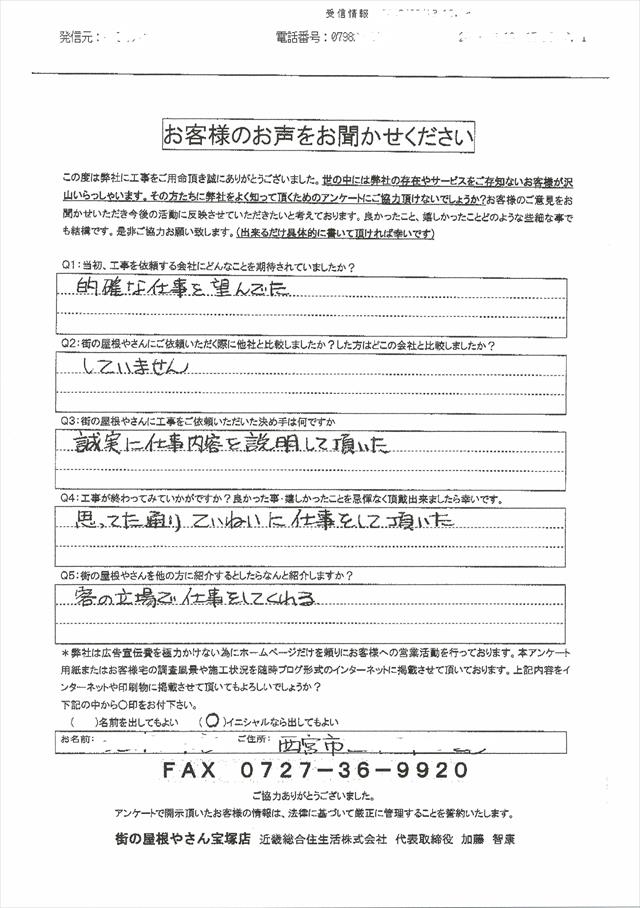 受信情報
発信元:
電話番号:0798
お客様のお声をお聞かせください
この度は弊社に工事をご用命頂き誠にありがとうございました。世の中には弊社の存在やサービスをご存知ないお客様が沢
山いらっしゃいます。その方たちに弊社をよく知って頂くためのアンケートにご協力頂けないでしょうか?お客様のご意見をお
聞かせいただき今後の活動に反映させていただきたいと考えております。良かったこと、嬉しかったことどのような些細な事で
も結構です。是非ご協力お願い致します。(出来るだけ具体的に書いて頂ければ幸いです)
Q1:当初、工事を依頼する会社にどんなことを期待されていましたか?
的確な仕事を望んでた
Q2:街の屋根やさんにご依頼いただく際に他社と比較しましたか?した方はどこの会社と比較しましたか?
していません
Q3:街の屋根やさんに工事をご依頼いただいた決め手は何ですか
誠実に仕事内容を説明して頂いた
Q4:工事が終わってみていかがですか?良かった事・嬉しかったことを忌憚なく頂戴出来ましたら幸いです。
思ってた通りていねいに仕事をして頂いた
Q5:街の屋根やさんを他の方に紹介するとしたらなんと紹介しますか?
客の立場で仕事をしてくれる
*弊社は広告宣伝費を極力かけない為にホームページだけを頼りにお客様への営業活動を行っております。本アンケート
用紙またはお客様宅の調査風景や施工状況を随時ブログ形式のインターネットに掲載させて頂いております。上記内容をイ
ンターネットや印刷物に掲載させて頂いてもよろしいでしょうか?
下記の中から〇印をお付下さい。
( )名前を出してもよい (〇)イニシャルなら出してもよい
お名前: ご住所: 西宮市
FAX 0727-36-9920
ご協力ありがとうございました。
アンケートで開示頂いたお客様の情報は、法律に基づいて厳正に管理することを誓約いたします。
街の屋根やさん宝塚店 近畿総合住生活株式会社 代表取締役 加藤 智康